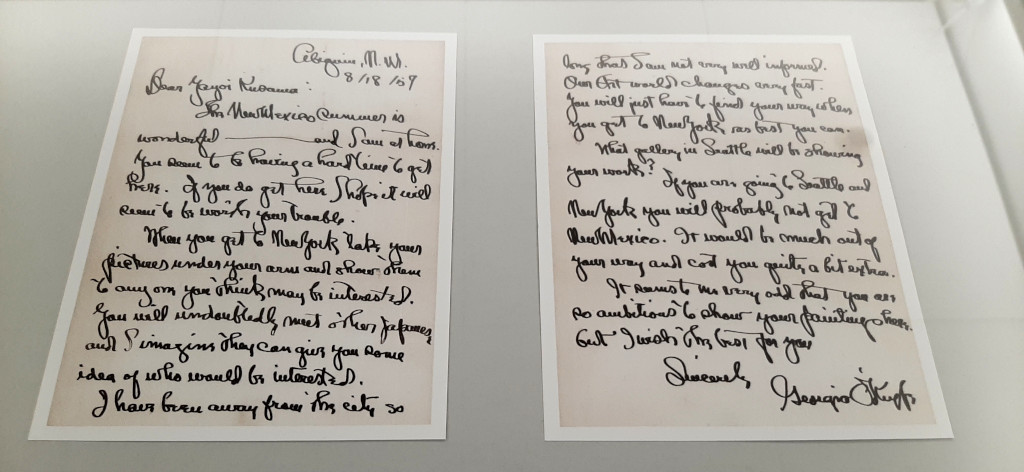 Abiquiu, N. M.
8/18/57
Dear Yayoi Kusama:
The New Mexico summer is
wonderful — and I am at home.
You seem to be having a hard time to get
here. If you do get here I hope it will
seem to be worth your trouble.
When you get to New York take your
pictures under your arm and show them
to any one you think may be interested.
You will undoubtedly meet other Japanese
and I imagine they can give you some
idea of who would be interested.
I have been away from the city so
long that I am not very well informed.
Our Art world changes very fast.
You will just have to find your way when
you get to New York as best you can.
What gallery in Seattle will be showing
your work? If you are going to Seattle and
New York you will probably not get to
New Mexico. It would be much out of
your way and cost you quite a bit extra.
It seems to me very odd that you are
so ambitious to show your paintings here.
but I wish the best for you
Sincerely
Georgia O'Keeffe